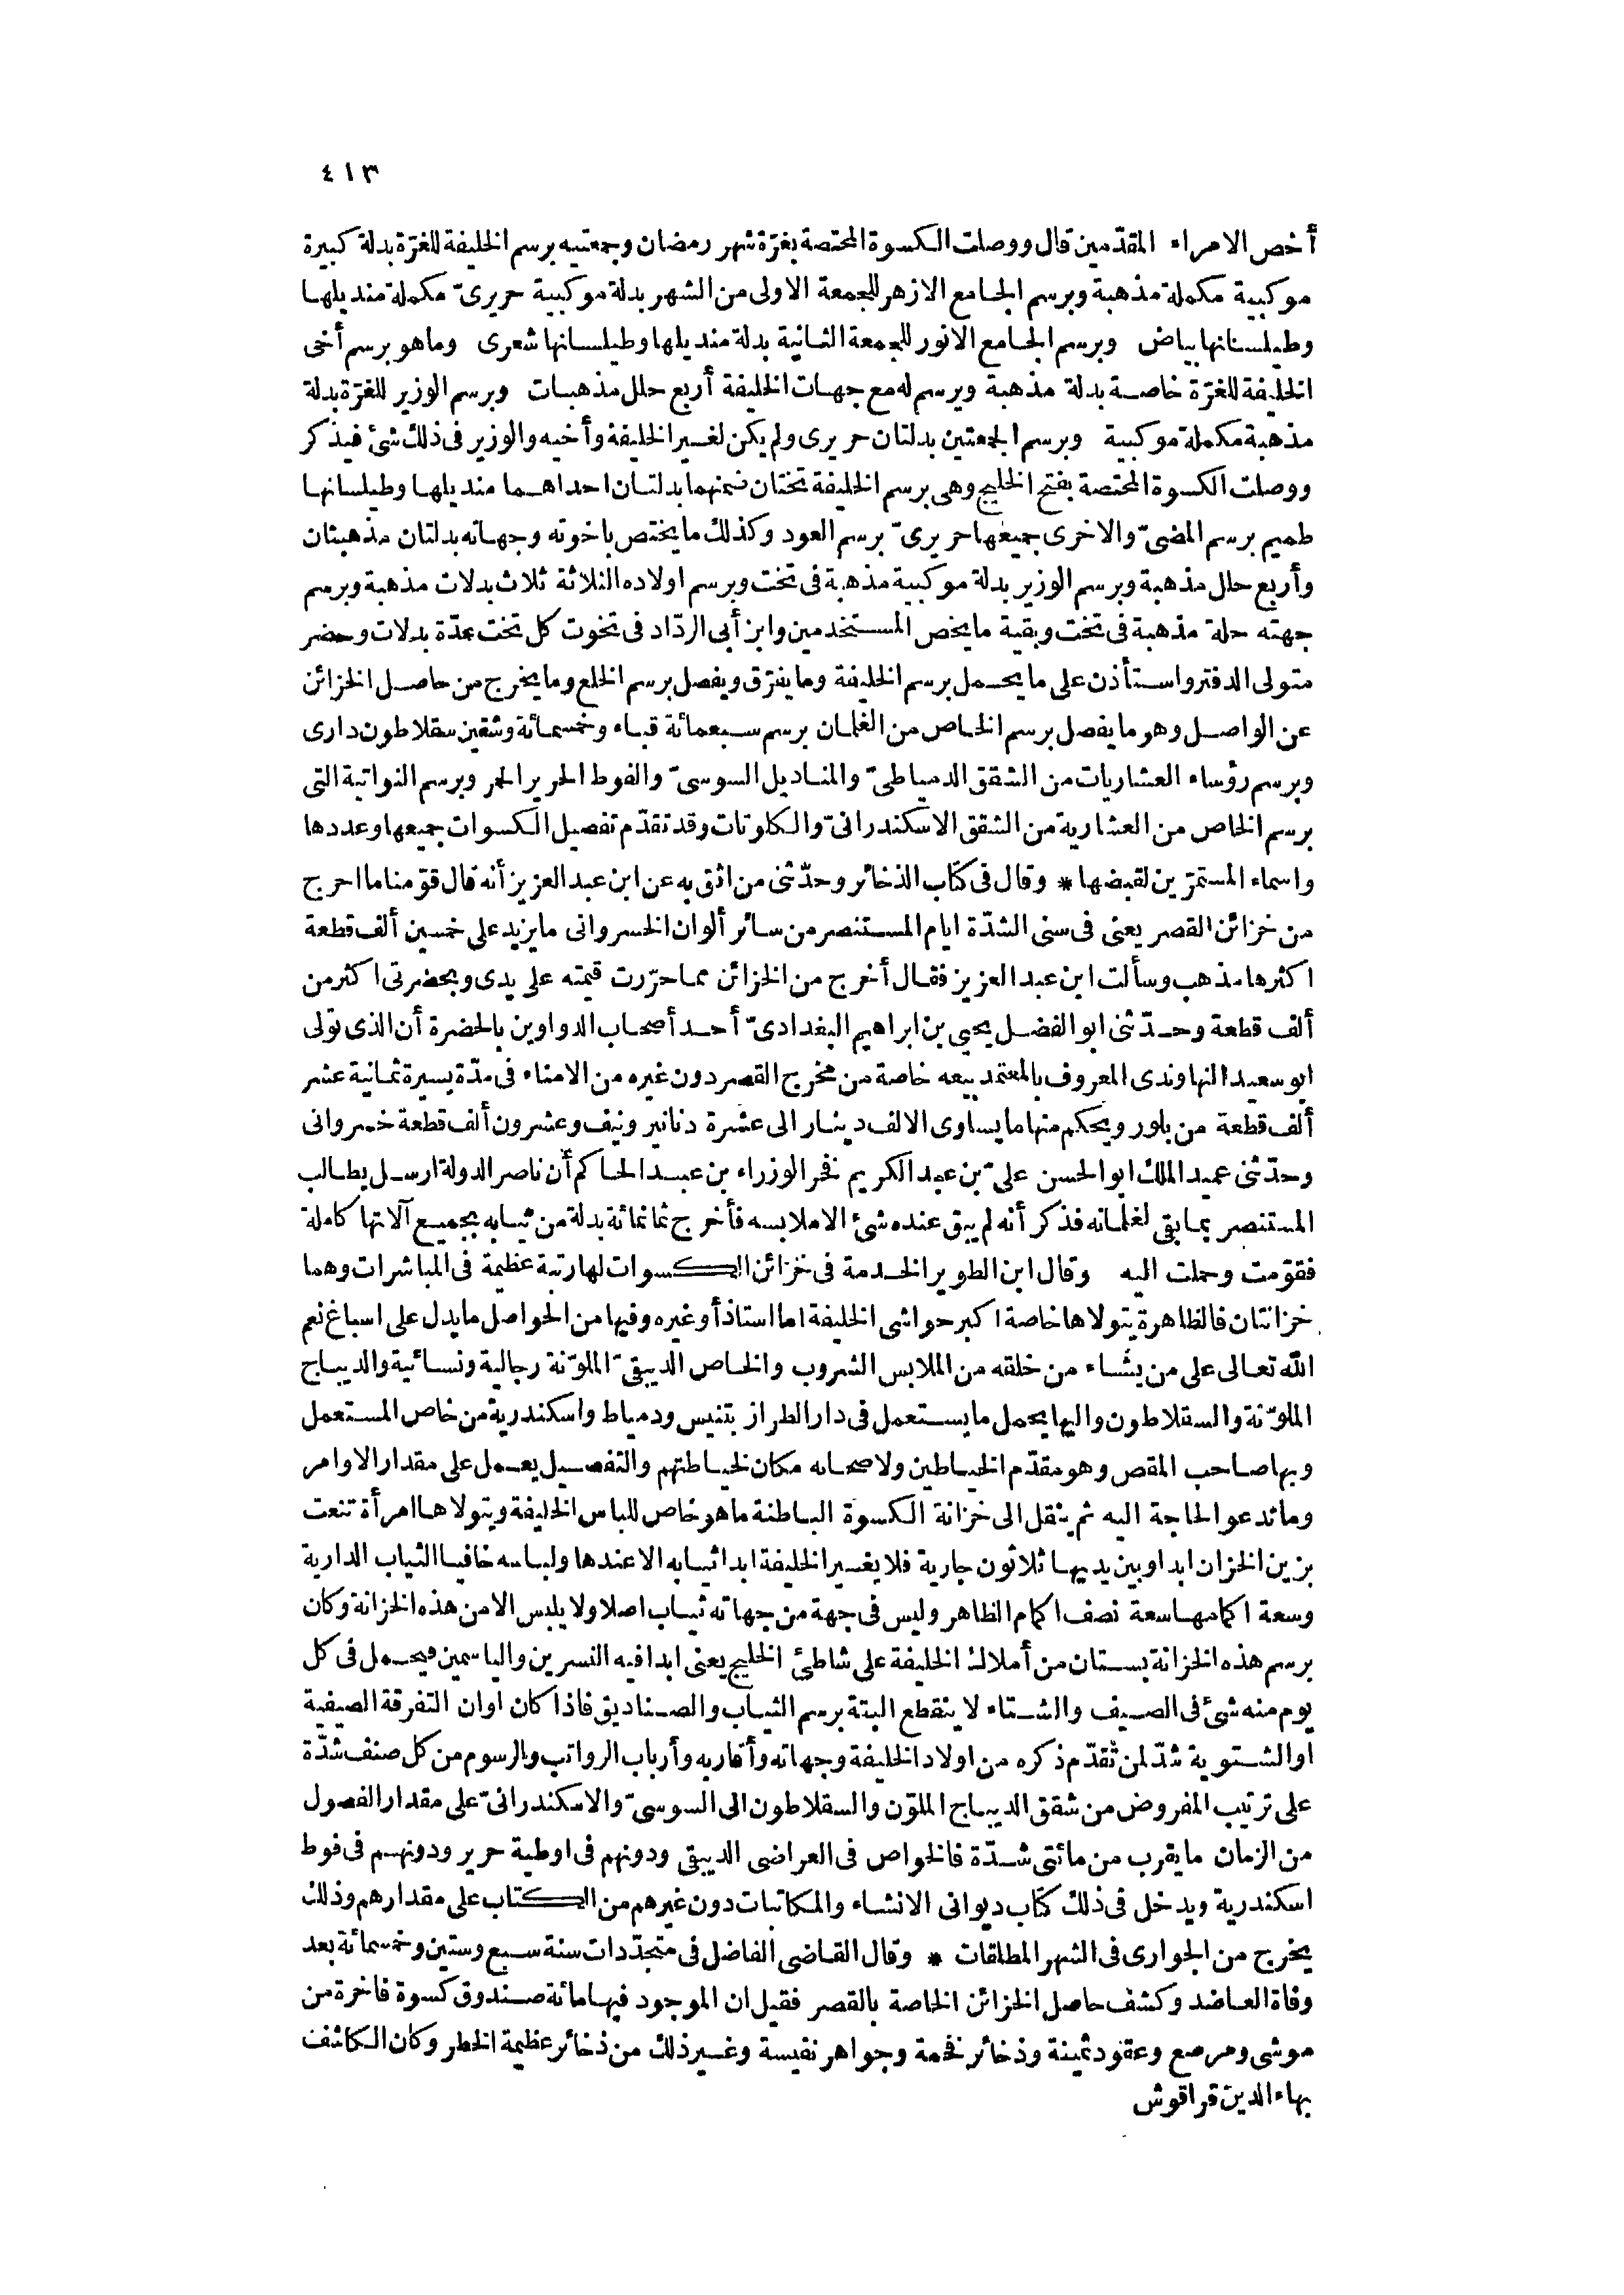 ٤١٣
أخص الامراء المقدّمين قال ووصلت الكسوة المختصة بغرّة شهر رمضان وجمعتيه برسم الخليفة للغرّة بدلة كبيرة
موكبية مكملة مذهبة وبرسم الجامع الازهر للجمعة الاولى من الشهر بدلة موكبية حريرىّ مكملة منديلها
وطيلسانها بياض وبرسم الجامع الانور للجمعة الثانية بدلة منديلها وطيلسانها شعرى وما هو برسم أخى
الخليفة للغرّة خاصة بدلة مذهبة وبرسم له مع جهات الخليفة أربع حلل مذهبات وبرسم الوزير للغرّة بدلة
مذهبة مكملة موكبية وبرسم الجمعتين بدلتان حريرى ولم يكن لغير الخليفة وأخيه والوزير فى ذلك شئ فيذكر
ووصلت الكسوة المختصة بفتح الخليج وهى برسم الخليفة تختان ضمنهما بدلتان احداهما منديلها وطيلسانها
طميم برسم المضىّ والاخرى جميعها حريرىّ برسم العود وكذلك ما يختص باخوته وجهاته بدلتان مذهبتان
وأربع حلل مذهبة وبرسم الوزير بدلة موكبية مذهبة فى تخت وبرسم اولاده الثلاثة ثلاث بدلات مذهبة وبرسم
جهته حلة مذهبة فى تخت وبقية ما يخص المستخدمين وابن أبى الردّاد فى تخوت كل تخت بعدّة بدلات وحضر
متولى الدفتر واستأذن على ما يحمل برسم الخليفة وما يفرّق ويفصل برسم الخلع وما يخرج من حاصل الخزائن
عن الواصل وهو ما يفصل برسم الخاص من الغلمان برسم سبعمائة قباء وخمسمائة وشقين سقلاطون دارى
وبرسم رؤساء العشاريات من الشقق الدمياطىّ والمناديل السوسىّ والفوط الحرير الحمر وبرسم النواتية التى
برسم الخاص من العشارية من الشقق الاسكندرانىّ والكلوتات وقد تقدّم تفصيل الكسوات جميعها وعددها
واسماء المستمرّين لقبضها * وقال فى كتاب الذخائر وحدّثنى من اثق به عن ابن عبد العزيز أنه قال قوّمنا ما اخرج
من خزائن القصر يعنى فى سنى الشدّة ايام المستنصر من سائر ألوان الخسروانى ما يزيد على خمسين ألف قطعة
اكثرها مذهب وسألت ابن عبد العزيز فقال أخرج من الخزائن مما حرّرت قيمته على يدى وبحضرتى اكثر من
ألف قطعة وحدّثنى ابو الفضل يحيى بن ابراهيم البغدادىّ أحد أصحاب الدواوين بالحضرة أن الذى تولى
ابو سعيد النهاوندى المعروف بالمعتمد بيعه خاصة من مخرج القصر دون غيره من الامناء فى مدّة يسيرة ثمانية عشر
ألف قطعة من بلور ومحكم منها ما يساوى الالف دينار الى عشرة دنانير ونيف وعشرون ألف قطعة خسروانى
وحدّثنى عميد الملك ابو الحسن علىّ بن عبد الكريم فخر الوزراء بن عبد الحاكم أن ناصر الدولة ارسل يطالب
المستنصر بما بقى لغلمانه فذكر أنه لم يبق عنده شئ الا ملابسه فأخرج ثمانمائة بدلة من ثيابه بجميع آلاتها كاملة
فقوّمت وحملت اليه وقال ابن الطوير الخدمة فى خزائن الكسوات لها رتبة عظيمة فى المباشرات وهما
خزانتان فالظاهرة يتولاها خاصة اكبر حواشى الخليفة اما استاذ أو غيره وفيها من الحواصل ما يدل على اسباغ نعم
الله تعالى على من يشاء من خلقه من الملابس الشروب والخاص الدبيقىّ الملوّنة رجالية ونسائية والديباج
الملوّنة والسقلاطون واليها يحمل ما يستعمل فى دار الطراز بتنيس ودمياط واسكندرية من خاص المستعمل
وبها صاحب المقص وهو مقدّم الخياطين ولاصحابه مكان لخياطتهم والتفصيل يعمل على مقدار الاوامر
وما تدعو الحاجة اليه ثم ينقل الى خزانة الكسوة الباطنة ما هو خاص للباس الخليفة ويتولاها امرأة تنعت
بزين الخزان ابدا وبين يديها ثلاثون جارية فلا يغير الخليفة ابدا ثيابه الا عندها ولباسه خافيا الثياب الدارية
وسعة اكمامها سعة نصف اكمام الظاهر وليس فى جهة من جهاته ثياب اصلا ولا يلبس الا من هذه الخزانة وكان
برسم هذه الخزانة بستان من أملاك الخليفة على شاطئ الخليج يعنى ابدا فيه النسرين والياسمين فيحمل فى كل
يوم منه شئ فى الصيف والشتاء لا ينقطع البتة برسم الثياب والصناديق فاذا كان اوان التفرقة الصيفية
او الشتوية شدّ لمن تقدّم ذكره من اولاد الخليفة وجهاته وأقاربه وأرباب الرواتب والرسوم من كل صنف شدّة
على ترتيب المفروض من شقق الديباج الملوّن والسقلاطون الى السوسىّ والاسكندرانىّ على مقدار الفصول
من الزمان ما يقرب من مائتى شدّة فالخواص فى العراضى الدبيقى ودونهم فى اوطية حرير ودونهم فى فوط
اسكندرية ويدخل فى ذلك كتاب ديوانى الانشاء والمكاتبات دون غيرهم من الكتاب على مقدارهم وذلك
يخرج من الجوارى فى الشهر المطلقات * وقال القاضى الفاضل فى متجدّدات سنة سبع وستين وخمسمائة بعد
وفاة العاضد وكشف حاصل الخزائن الخاصة بالقصر فقيل ان الموجود فيها مائة صندوق كسوة فاخرة من
موشى ومرصع وعقود ثمينة وذخائر فخمة وجواهر نفيسة وغير ذلك من ذخائر عظيمة الخطر وكان الكاشف
بهاء الدين قراقوش